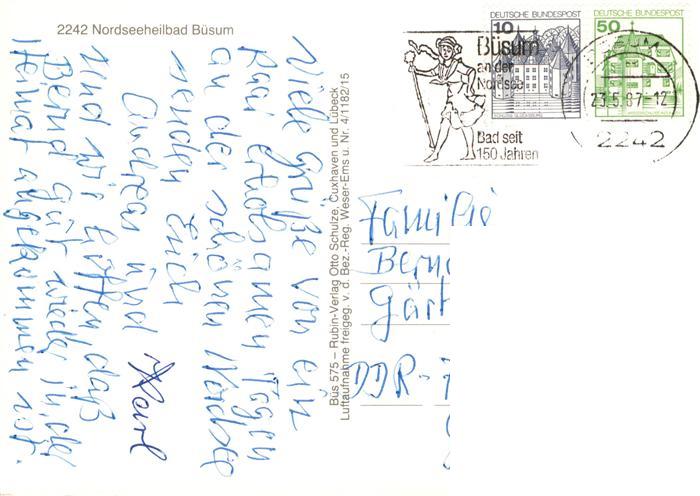 2242 Nordseeheilbad Büsum
Viele Grüße von ein
paar erholsamen Tagen
an der schönen Nordsee
senden Euch
Andreas und Karl
und wir hoffen, daß
Bernd gut wieder in der
Heimat angekommen ist.
Büs 575 – Rubin-Verlag Otto Schulze, Cuxhaven und Lübeck
Luftaufnahme freigeg. v. d. Bez.-Reg. Weser-Ems u. Nr. 4/1182/15
Büsum
an der
Nordsee
Bad seit
150 Jahren
DEUTSCHE BUNDESPOST
10
SCHLOSS GLÜCKSBURG
DEUTSCHE BUNDESPOST
50
23.5.87-12
2242
Familie
Bern
Gärt
DDR-